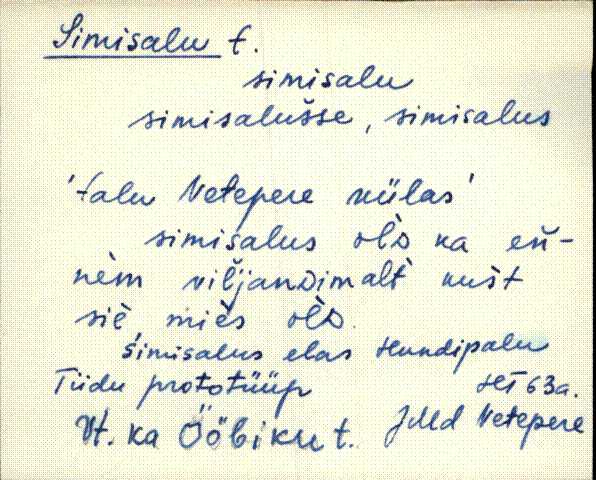 Simisalu t.
simisalu
simisalušse, simisalus
'talu Vetepere külas'
simisalus oĺD ka eň-
nèm viljanDimalt kušt
siè mìes oĺD.
simisalus elas Hundipalu
Tiidu prototüüp HT 63a.
Vt. ka Ööbiku t. JMd Vetepere